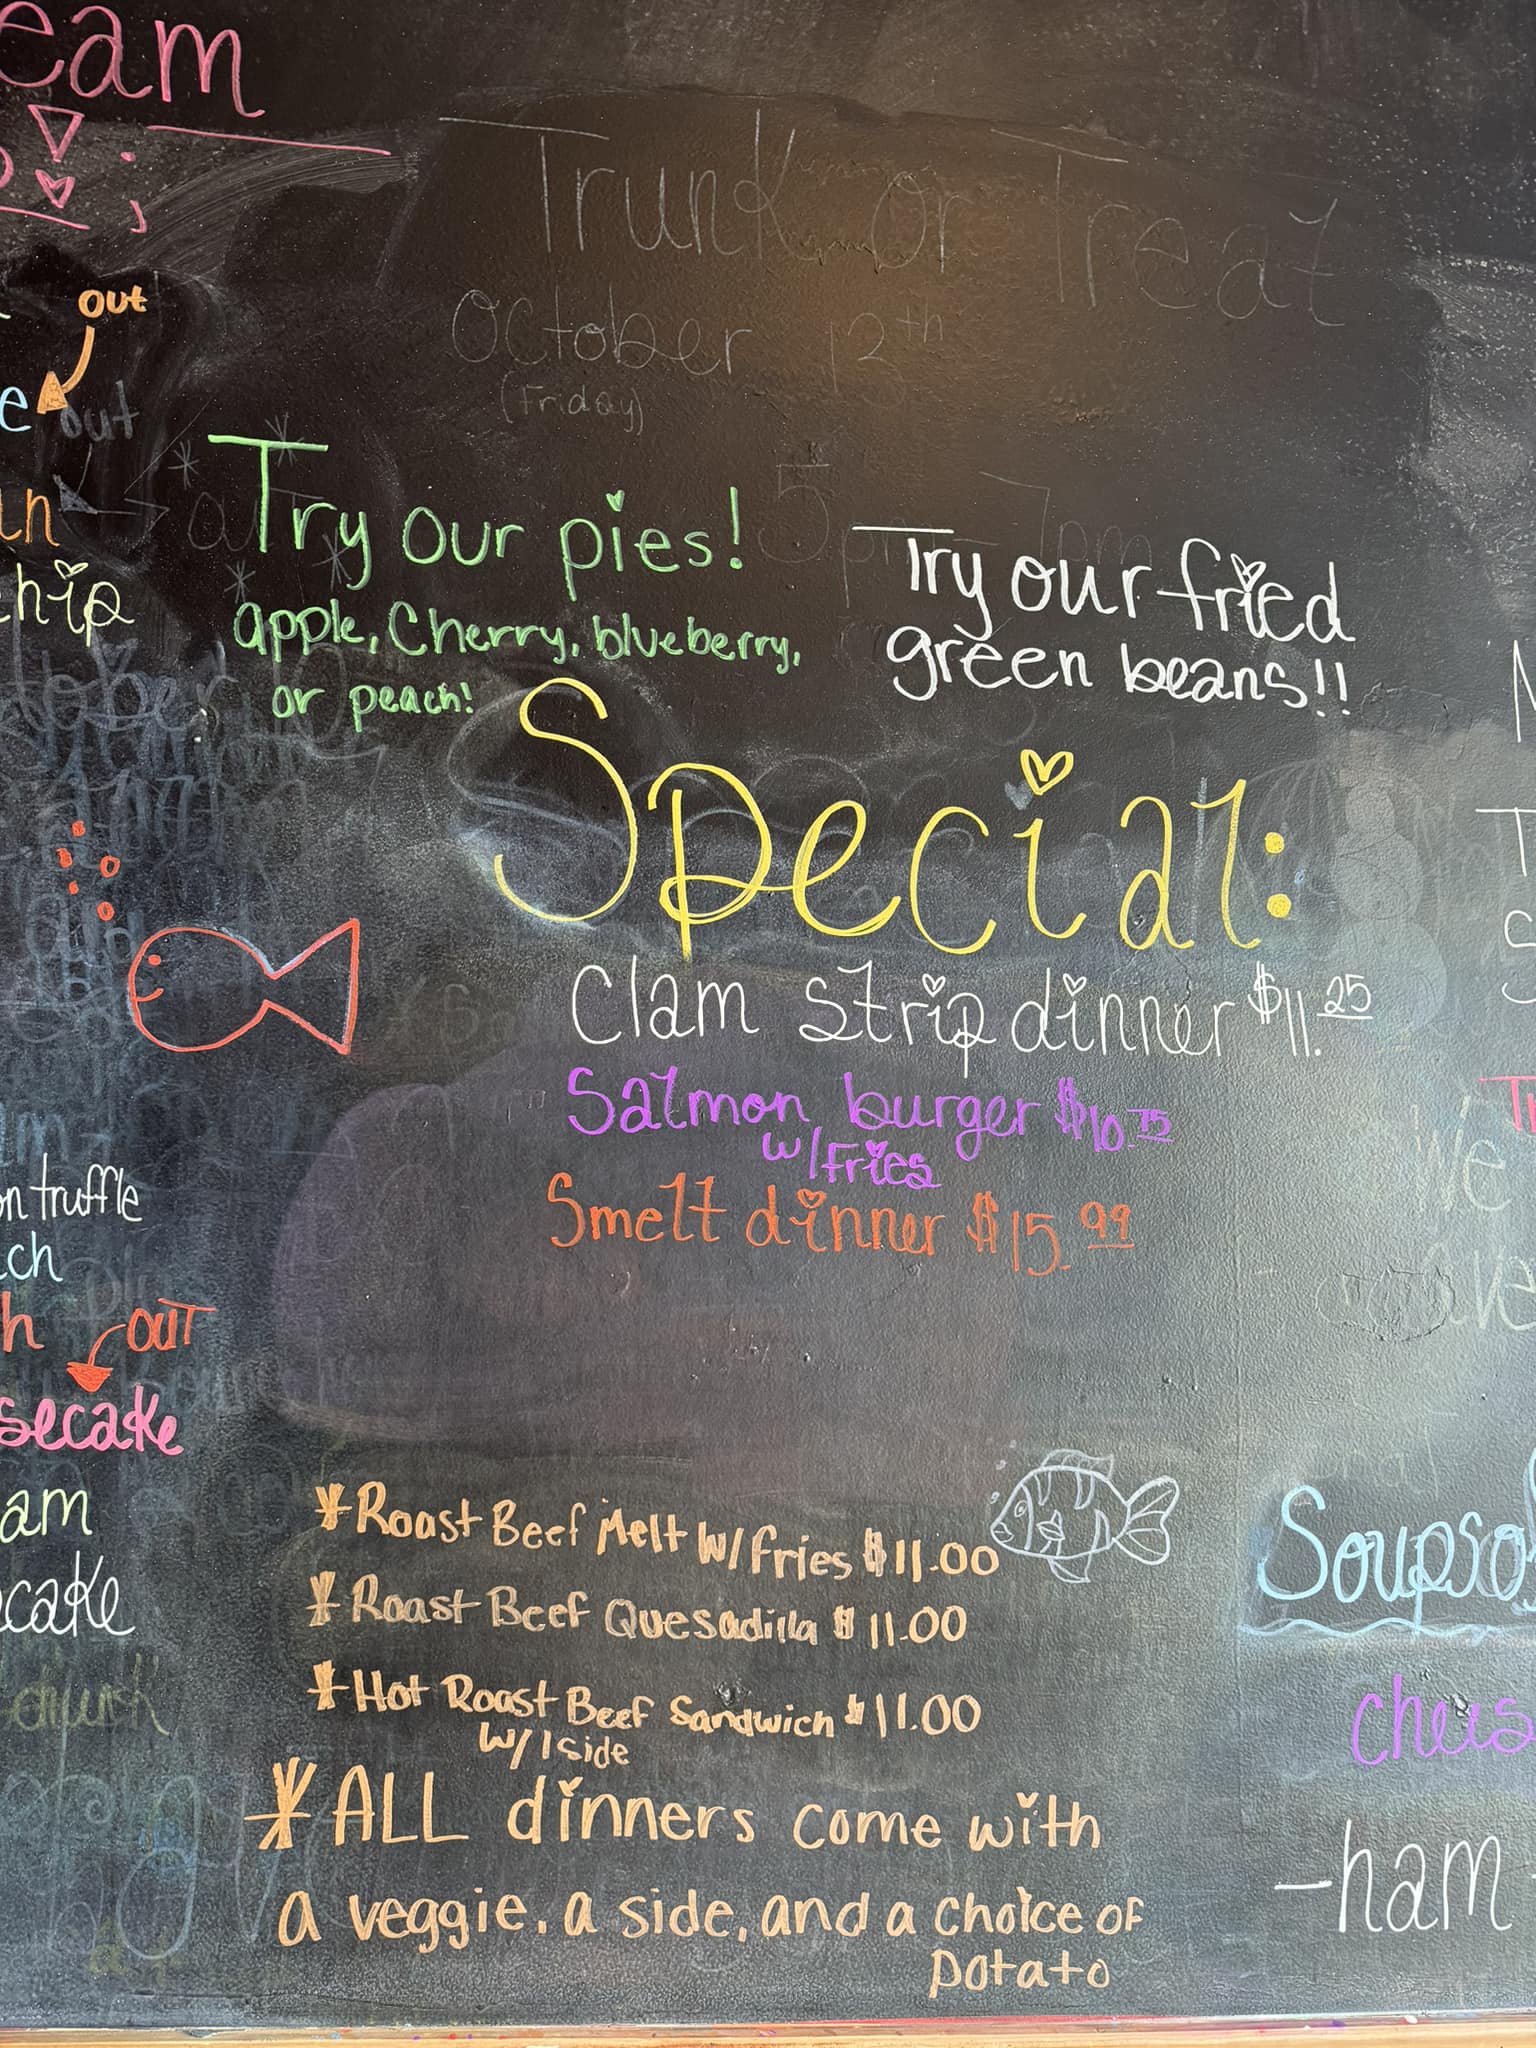 out
out
hip
Trunk or Treat
October 13th
(Friday)
5pm - 7pm
Try our pies!
apple, Cherry, blueberry,
or peach!
Try our fried
green beans!!
Special:
Clam strip dinner $11.25
Salmon burger $10.75
w/Fries
Smelt dinner $15.99
on truffle
OUT
secake
am
cake
*Roast Beef Melt w/fries $11.00
*Roast Beef Quesadilla $11.00
*Hot Roast Beef Sandwich $11.00
w/1 side
*ALL dinners come with
a veggie, a side, and a choice of
potato
We
Soups
chees
-ham